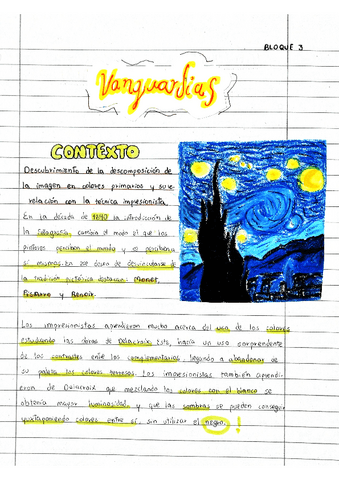 BLOQUE 3
Vanguardias
CONTEXTO
Descubrimiento de la descomposición de
la imagen en colores primarios y su
relación con la técnica impresionista
En la década de 1840 la introducción de
la fotografía, cambia el modo el que los
pintores perciben el mundo y se perciben a
sí mismos. Su deseo de desvincularse de
la tradición pictórica destacan: Monet,
Pissarro y Renoir.
Los impresionistas aprendieron mucho acerca del uso de los colores
estudiando las obras de Delacroix. Esto, hacía un uso sorprendente
de los contrastes entre los complementarios, llegando a abandonar de
su paleta los colores terrosos. Los impresionistas también aprendi-
eron de Delacroix que mezclando los colores con el blanco se
obtenía mayor luminosidad, y que las sombras se pueden conseguir
yuxtaponiendo colores entre sí, sin utilizar el negro. !